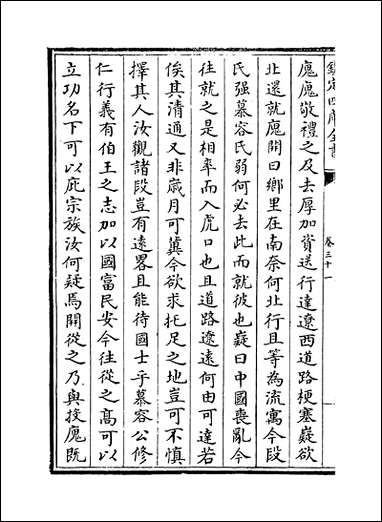 欽定四庫全書
卷三十一
廆廆敬禮之及去厚加資送行達遼西道路梗塞嶷欲
北還就廆開曰鄉里在南奈何北行且等為流寓今段
氏强慕容氏弱何必去此而就彼也嶷曰中國喪亂今
往就之是相率而入虎口也且道路遼遠何由可達若
俟其清通又非歲月可冀今欲求托足之地豈可不慎
擇其人汝觀諸段豈有逺畧且能待國士乎慕容公修
仁行義有伯王之志加以國富民安今往從之髙可以
立功名下可以庇宗族汝何疑焉開從之乃與投廆既